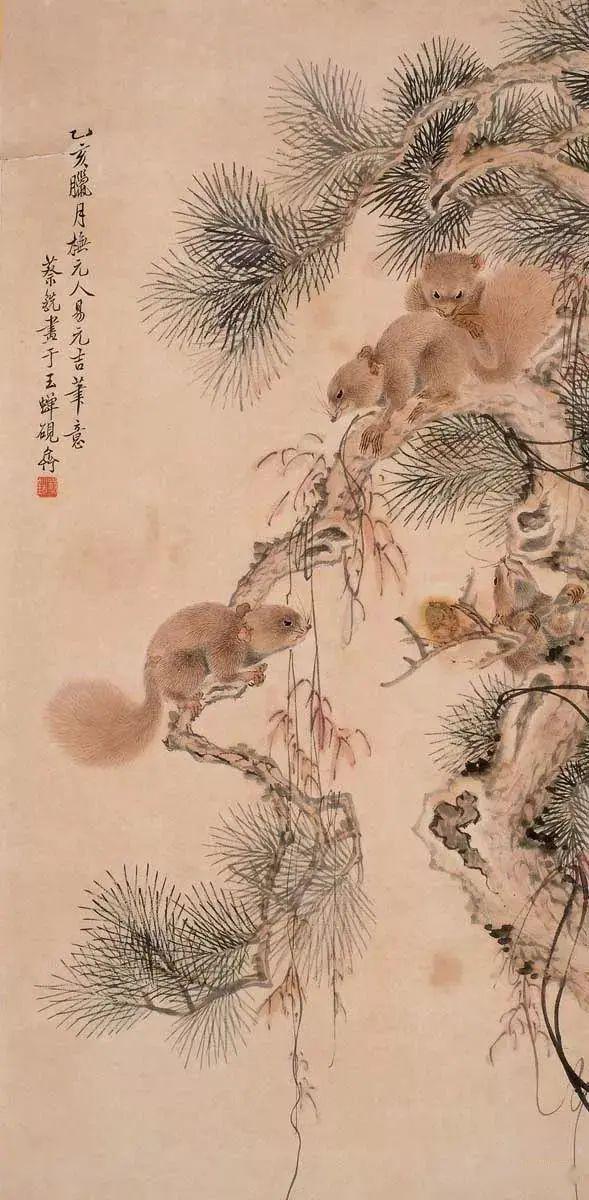 乙亥臘月橅元人易元吉筆意
蔡銑畫于玉蟬硯齋